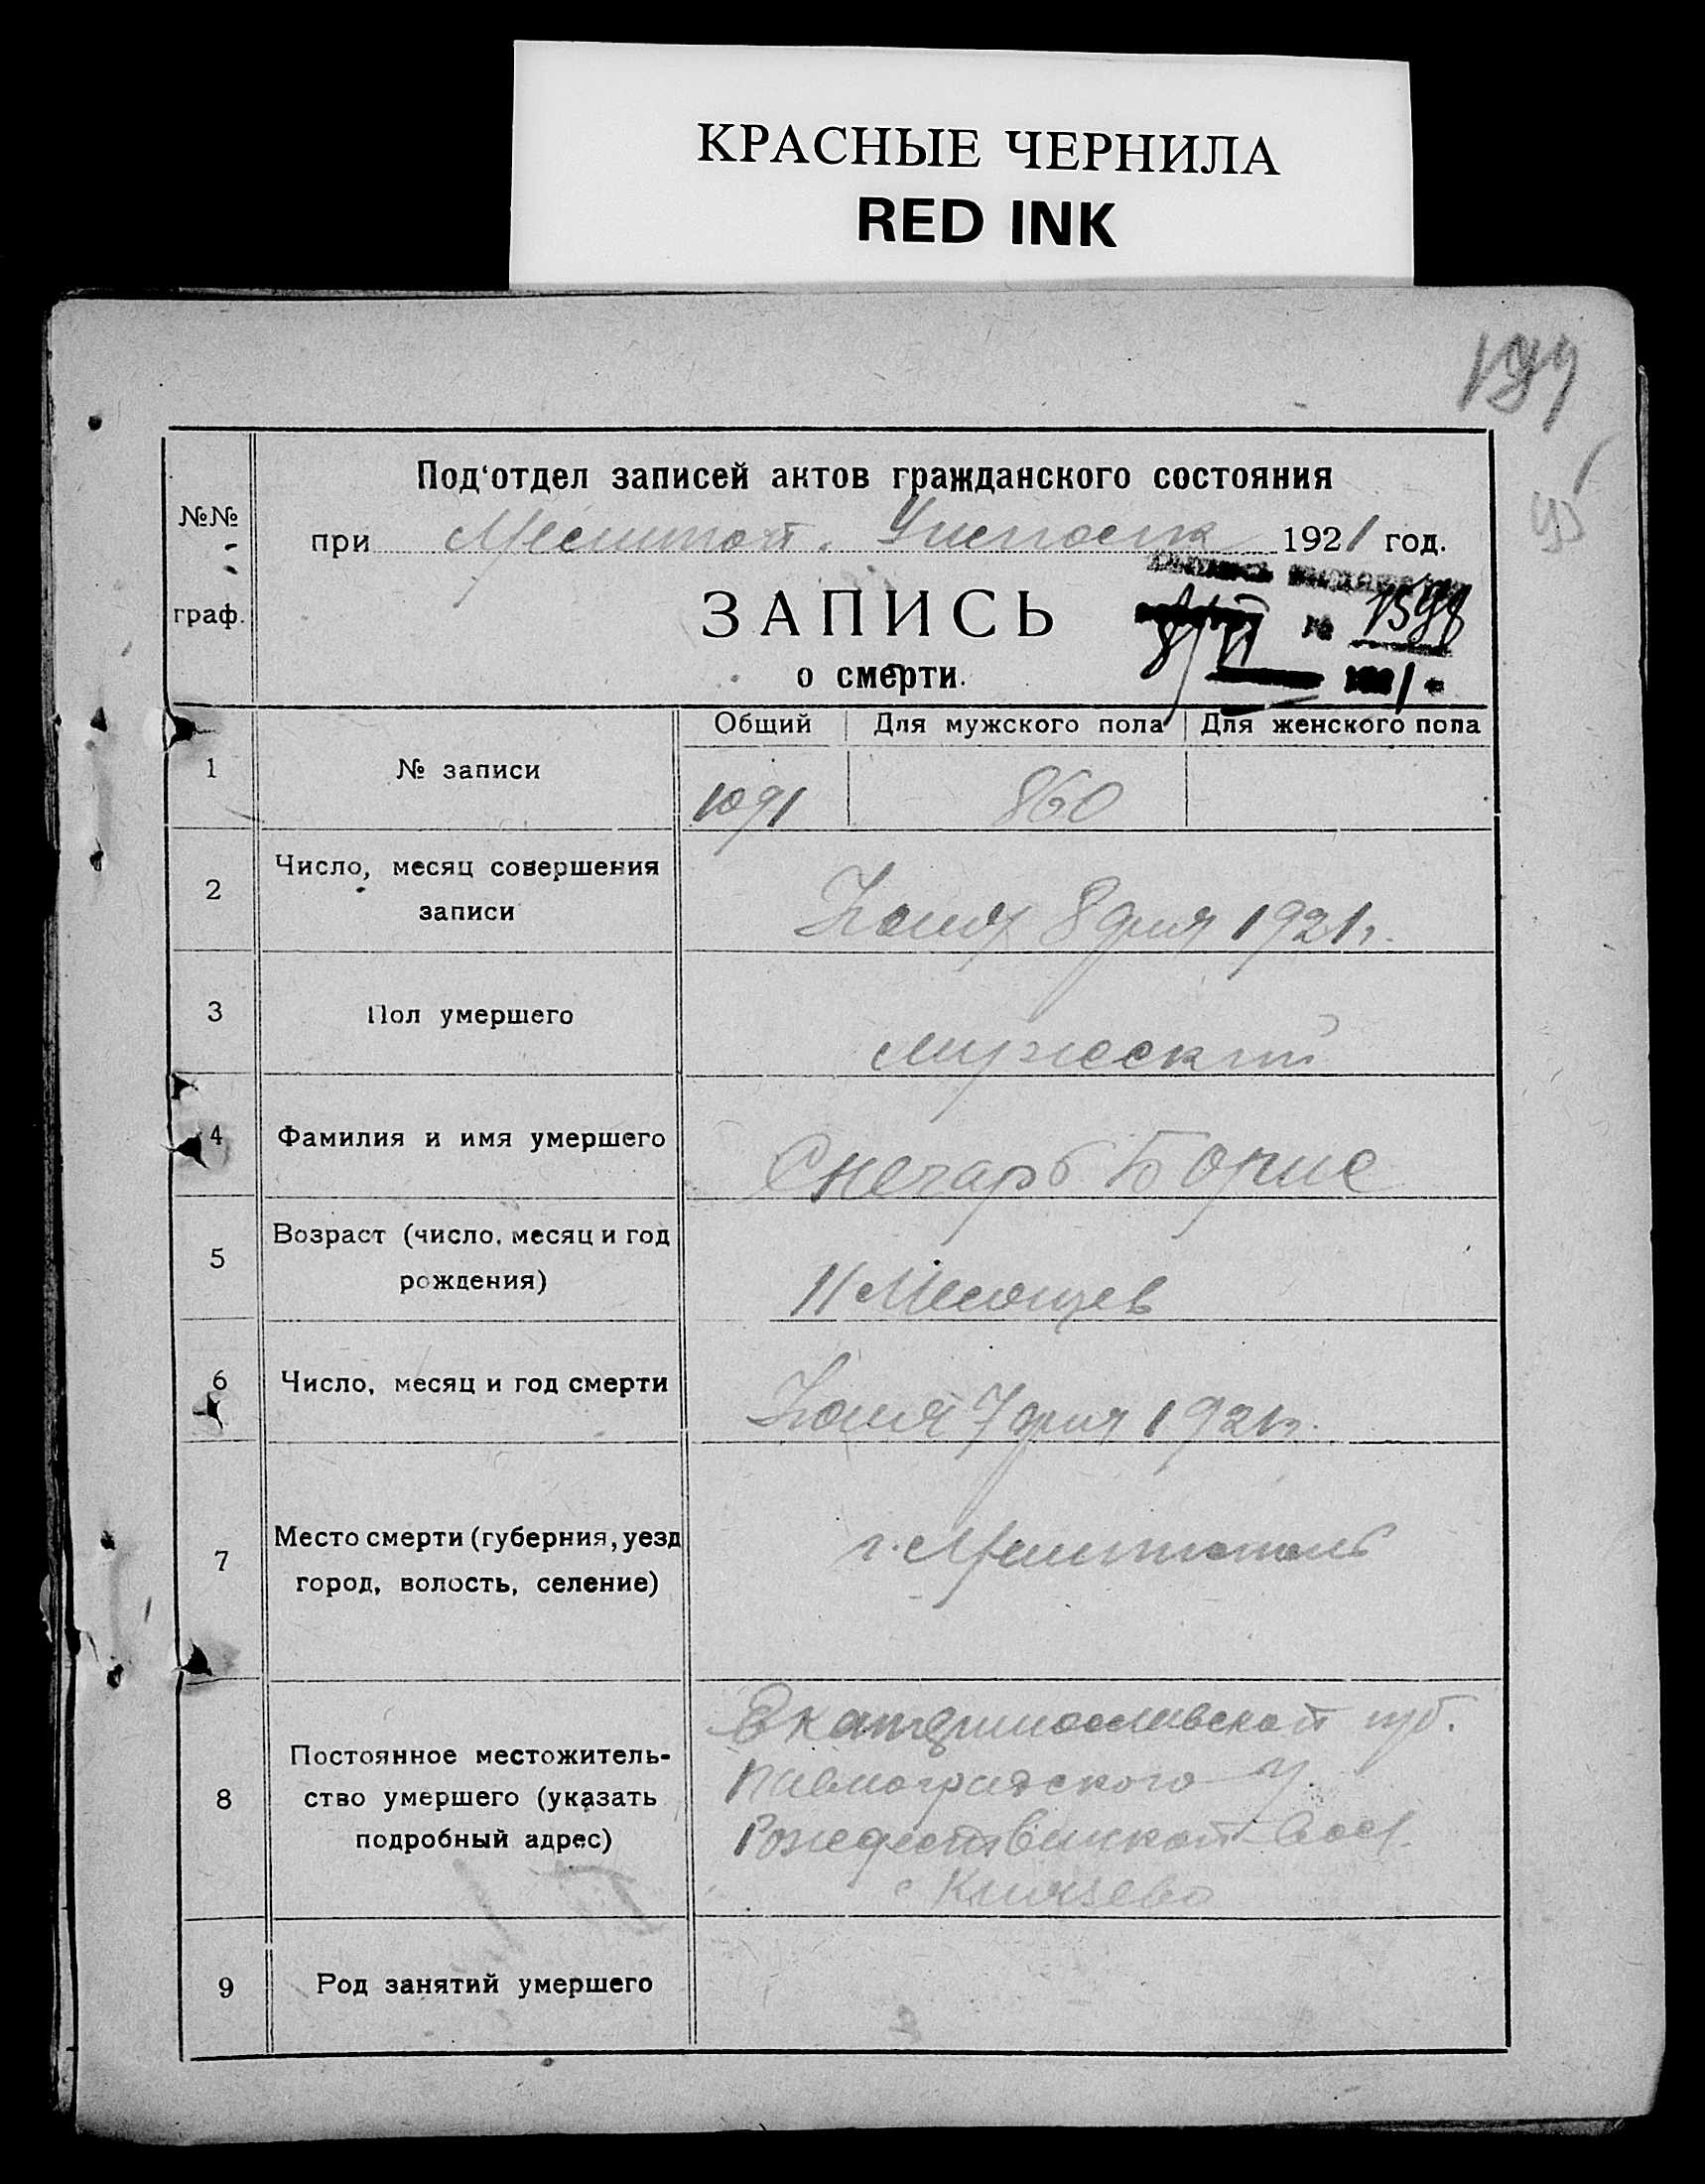 КРАСНЫЕ ЧЕРНИЛА
RED INK
Под'отдел записей актов гражданского состояния
№№ граф.
при 1921 год.
ЗАПИСЬ
о смерти.
№ 1598
Общий Для мужского пола Для женского пола
1 № записи 1091 860
2 Число, месяц совершения
записи
8 дня 1921г.
3 Пол умершего мужеский
4 Фамилия и имя умершего Снегарь Борис
5 Возраст (число, месяц и год
рождения)
11 Месяцев
6 Число, месяц и год смерти 7 дня 1921г.
7 Место смерти (губерния, уезд
город, волость, селение)
г. Мелитополь
8 Постоянное местожитель-
ство умершего (указать
подробный адрес)
Екатеринославской губ.
Павлоградского у.
вол.
Князево
9 Род занятий умершего